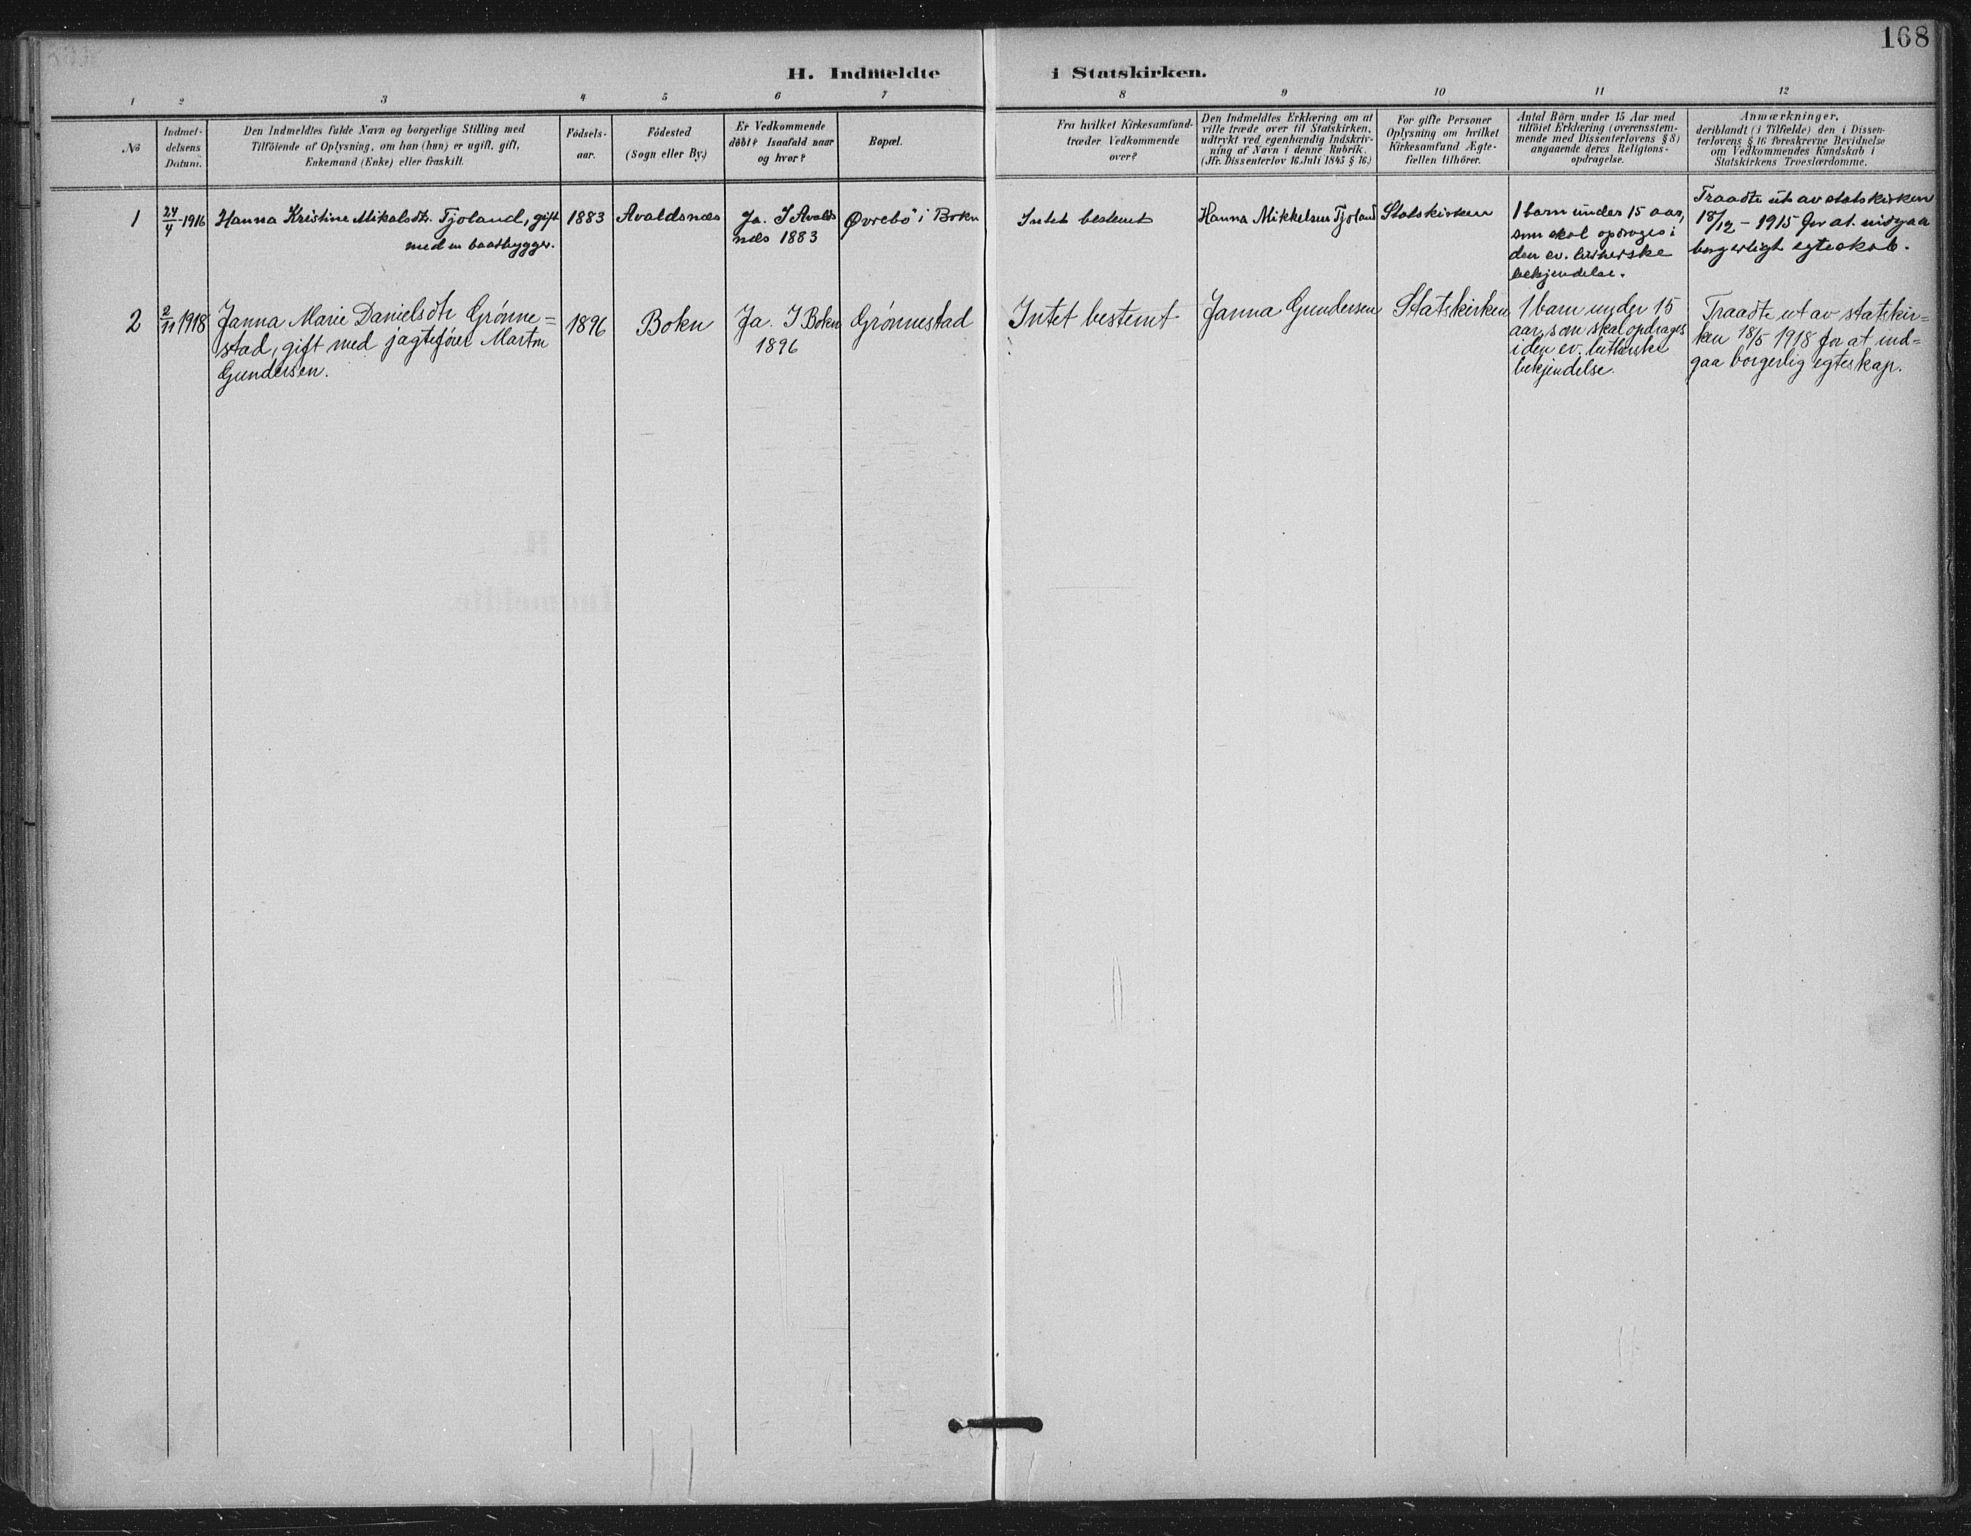 168
H. Indmeldte i Statskirken.
1 2 3 4 5 6 7 8 9 10 11 12
No
Indmel-
delsens
Datum.
Den Indmeldtes fulde Navn og borgerlige Stilling med
Tilföiende af Oplysning, om han (hun) er ugift, gift,
Enkemand (Enke) eller fraskilt.
Födsels-
aar.
Födested
(Sogn eller By.)
Er Vedkommende
döbt? Isaafald naar
og hvor?
Bopæl.
Fra hvilket Kirkesamfund
træder Vedkommende
over?
Den Indmeldtes Erklæring om at
ville træde over til Statskirken,
udtrykt ved egenhændig Indskriv-
ning af Navn i denne Rubrik.
(Jfr. Dissenterlov 16 Juli 1845 § 16.)
For gifte Personer
Oplysning om hvilket
Kirkesamfund Ægte-
fællen tilhörer.
Antal Börn under 15 Aar med
tilföiet Erklæring (overensstem-
mende med Dissenterlovens § 8)
angaaende deres Religions-
opdragelse.
Anmærkninger,
deriblandt (i Tilfælde) den i Dissen-
terlovens § 16 foreskrevne Bevidnelse
om Vedkommendes Kundskab i
Statskirkens Troeslærdomme.
1
24/4-1916
Hanna Kristine Mikalsdtr. Tjoland, gift
med en baatbygger.
1883
Avaldsnes
Ja. I Avalds
nes 1883
Øvrebö i Bokn
Intet bestemt
Hanna Mikkelsen Tjoland
Statskirken
1 barn under 15 aar,
som skal opdrages i
den ev. lutherske
bekjendelse.
Traadte ut av statskirken
18/12 - 1915 for at indgaa
borgerligt egteskab.
2
2/11 1918
Janna Marie Danielsdtr Grønne=
stad, gift med jagtefører Marton
Gundersen.
1896
Bokn
Ja. I Bokn
1896
Grønnestad
Intet bestemt
Janna Gundersen
Statskirken
1 barn under 15
aar, som skal opdrages
i den ev. lutherske
bekjendelse.
Traadte ut av statskir=
ken 18/5 1918 for at ind=
gaa borgerlig egteskap.
H.
Indmeldte.